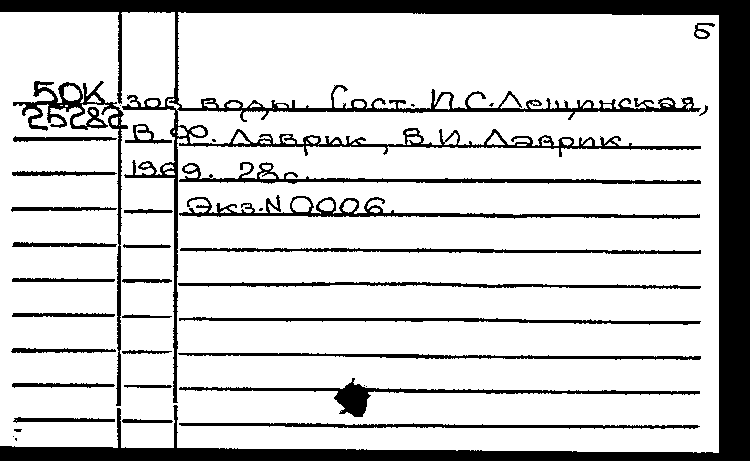 5
50К зов воды. Сост. И.С.Лещинская,
25282 В.Ф. Лаврик, В.И. Лаврик.
1969. 28с.
Экз.N0006.